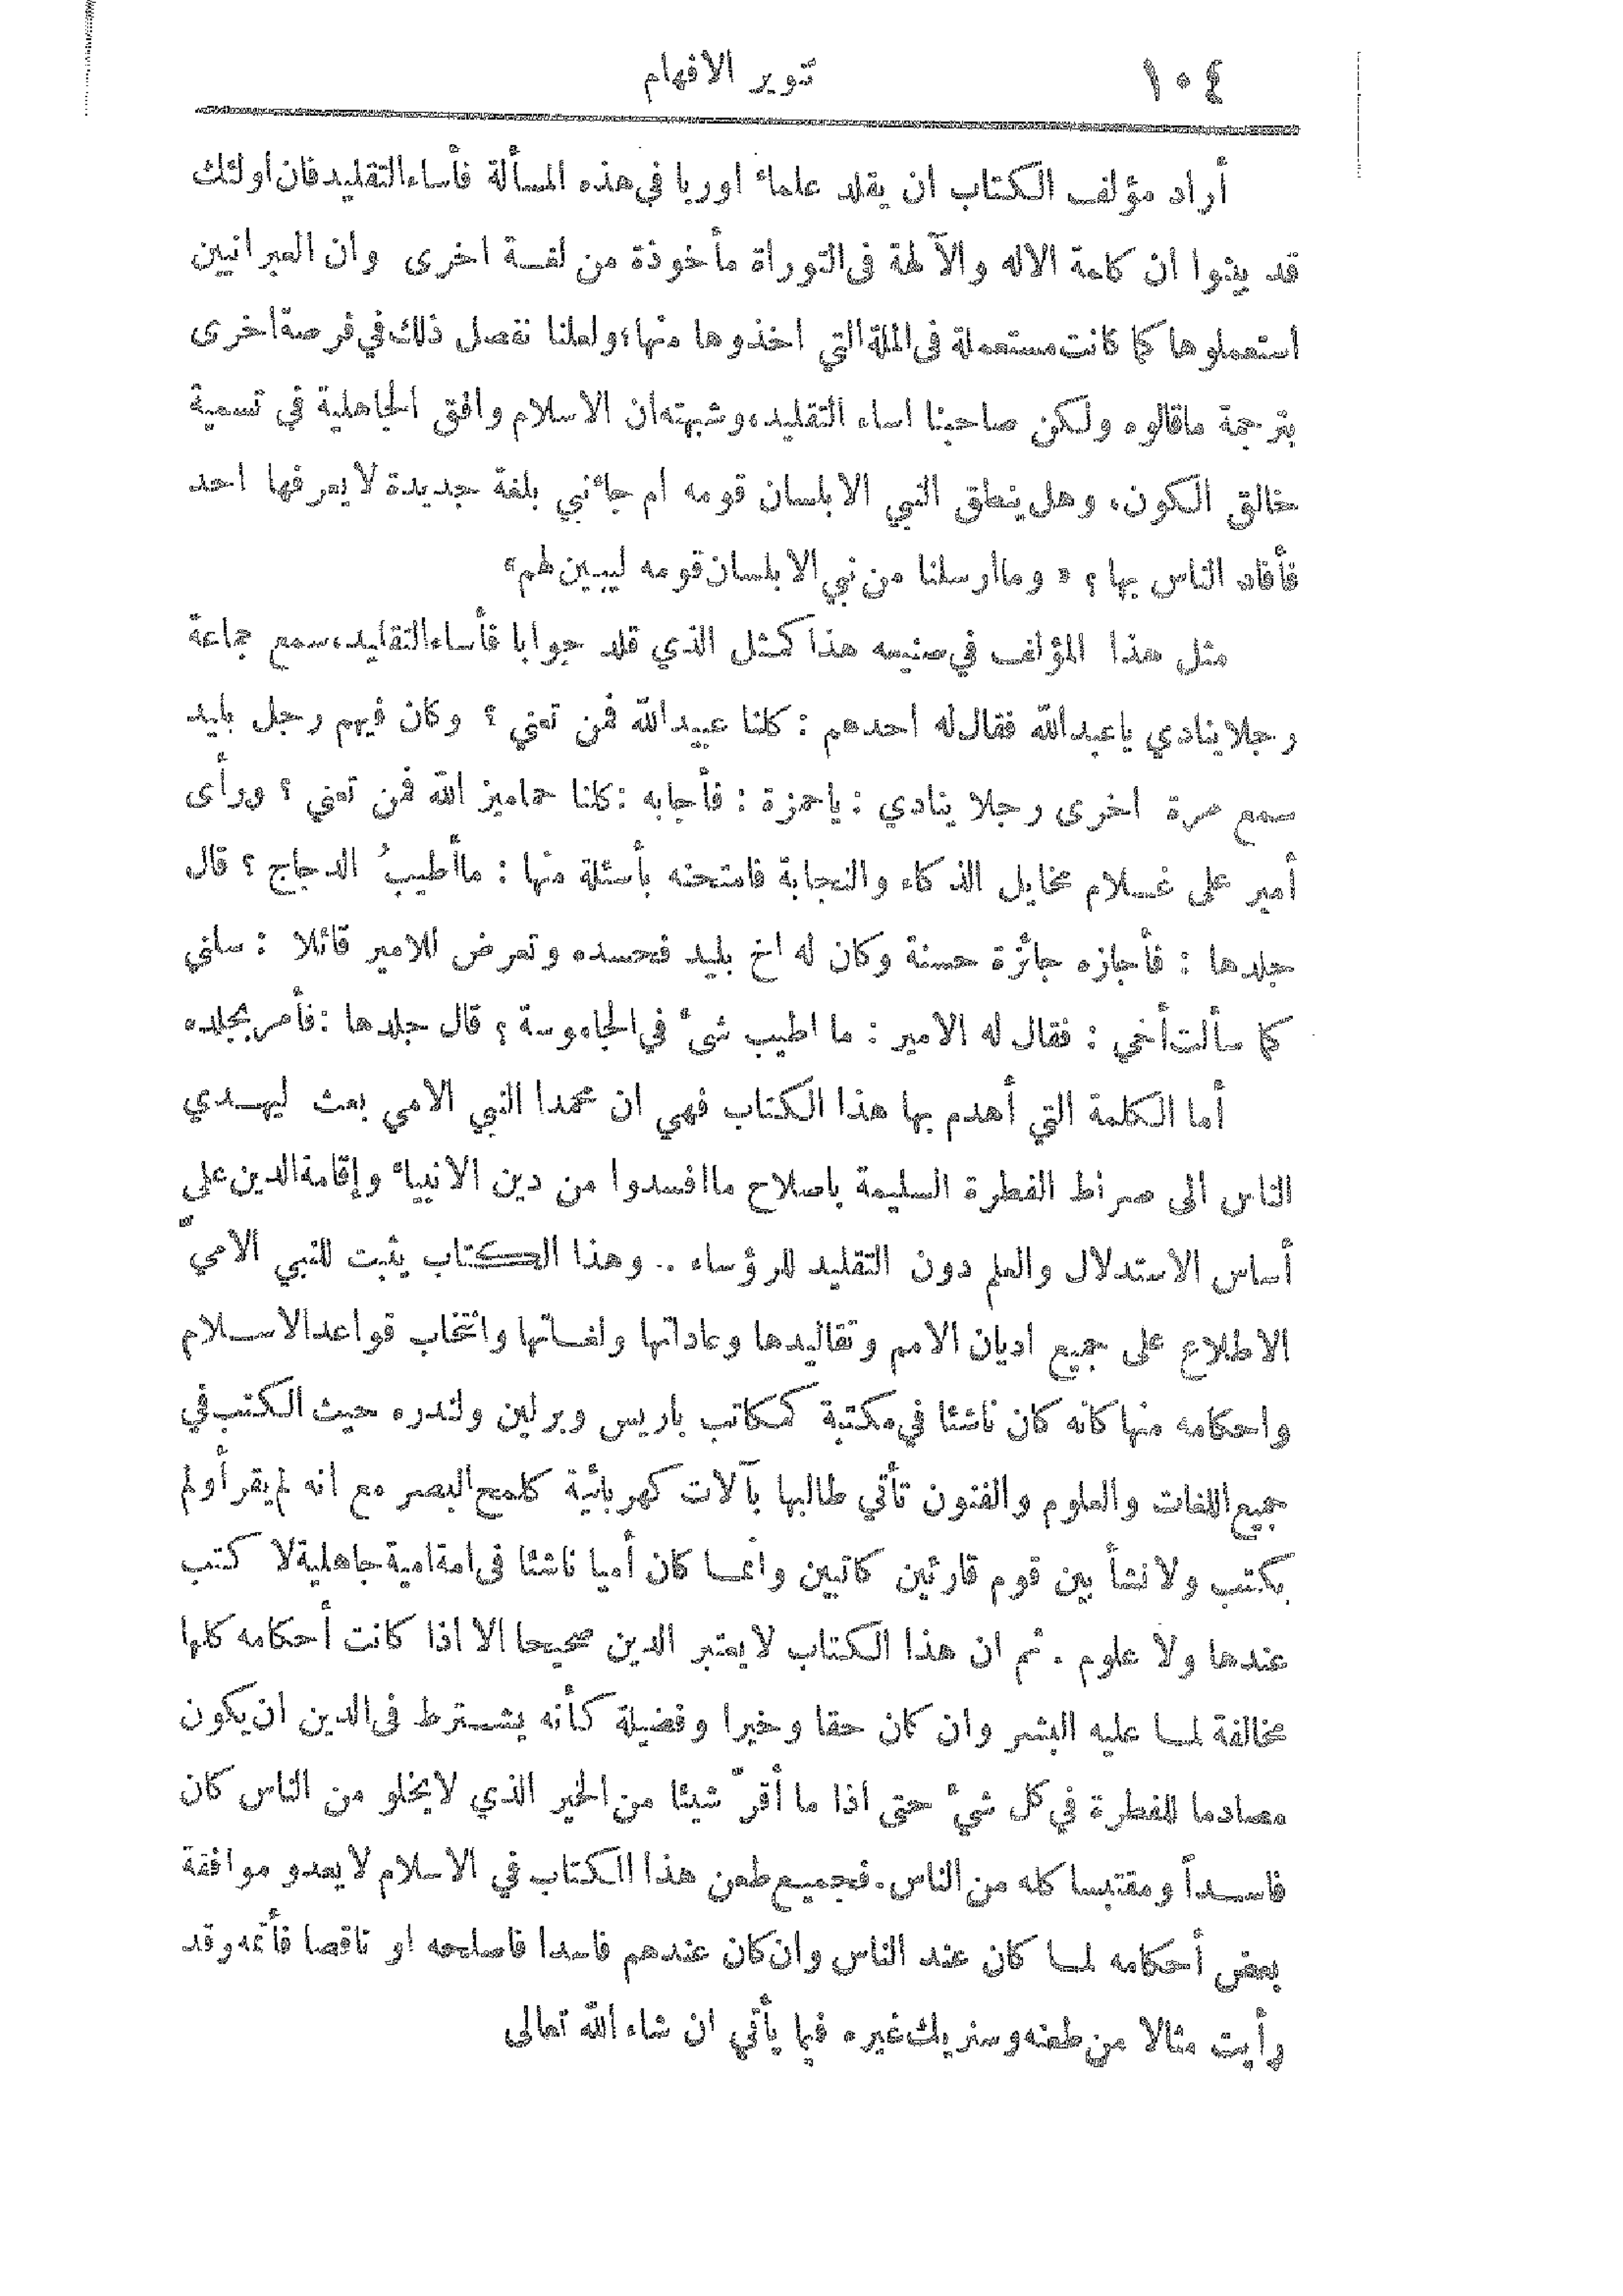 ١٠٤ تنوير الافهام
أراد مؤلف الكتاب ان يقلد علماء اوربا في هذه المسألة فأساء التقليد فان اولئك
قد بينوا ان كلمة الاله والآلهة في التوراة مأخوذة من لغـة اخرى وان العبرانيين
استعملوها كما كانت مستعملة في الملة التي اخذوها منها، ولعلنا نفصل ذلك في فرصة اخرى
بترجمة ماقالوه ولكن صاحبنا اساء التقليد، وشبهته ان الاسلام وافق الجاهلية في تسمية
خالق الكون، وهل ينطق النبي الا بلسان قومه ام جاءني بلغة جديدة لا يعرفها احد
فأفاد الناس بها؟ «وما ارسلنا من نبي الا بلسان قومه ليبين لهم»
مثل هذا المؤلف في صنيعه هذا كمثل الذي قلد جوابا فأساء التقليد، سمع جماعة
رجلا ينادي ياعبدالله فقال له احدهم : كلنا عبيد الله فمن تعني ؟ وكان فيهم رجل بليد
سمع مرة اخرى رجلا ينادي : ياحمزة : فأجابه : كلنا حماميز الله فمن تعني ؟ ورأى
أمير على غـلام مخايل الذكاء والنجابة فامتحنه بأسئلة منها : ماأطيبُ الدجاج ؟ قال
جلدها : فأجازه جائزة حسنة وكان له اخ بليد فحسده وتعرض للامير قائلا : سلني
كما سألت أخي : فقال له الامير : ما اطيب شيء في الجاموسة ؟ قال جلدها : فأمر بجلده
أما الكلمة التي أهدم بها هذا الكتاب فهي ان محمدا النبي الامي بعث ليهـدي
الناس الى صراط الفطرة السليمة باصلاح ماافسدوا من دين الانبياء وإقامة الدين على
أساس الاستدلال والعلم دون التقليد للرؤساء .. وهذا الكتاب يثبت للنبي الاميّ
الاطلاع على جميع اديان الامم وتقاليدها وعاداتها ولغـاتها وانتخاب قواعد الاسـلام
واحكامه منها كانه كان ناشئا في مكتبة كمكاتب باريس وبرلين ولندره حيث الكتب في
جميع اللغات والعلوم والفنون تأتي طالبها بآلات كهربائية كلمح البصر مع انه لم يقرأ ولم
يكتب ولا نشأ بين قوم قارئين كاتبين وانما كان أميا ناشئا في امة امية جاهلية لا كتب
عندها ولا علوم . ثم ان هذا الكتاب لا يعتبر الدين صحيحا الا اذا كانت أحكامه كلها
مخالفة لما عليه البشر وان كان حقا وخيرا وفضيلة كأنه يشـترط في الدين ان يكون
مصادما للفطرة في كل شيء حتى اذا ما أقرّ شيئا من الخير الذي لايخلو من الناس كان
فاسـداً ومقتبسا كله من الناس. فجميع طعن هذا الكتاب في الاسلام لا يعدو موافقة
بعض أحكامه لما كان عند الناس وان كان عندهم فاسدا فاصلحه او ناقصا فأتمه وقد
رأيت مثالا من طعنه وسنريك غيره فيما يأتي ان شاء الله تعالى